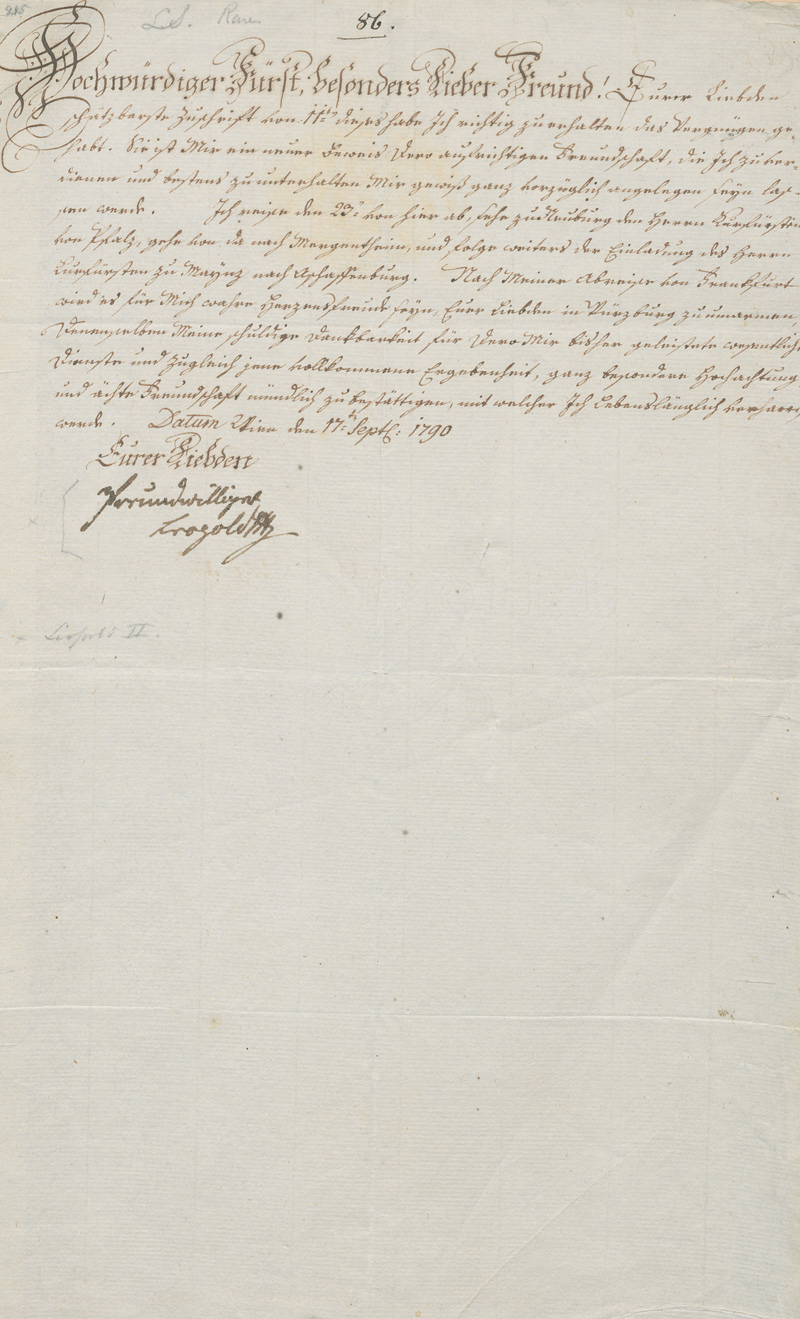 985
L.S. Rare
86.
Hochwürdiger Fürst, besonders Lieber Freund! Eurer Liebden
schätzbarste Zuschrift von 11ten dieses habe Ich richtig zu erhalten das Vergnügen ge-
habt. Sie ist Mir ein neuer Beweis Dero aufrichtigen Freundschaft, die Ich zu ver-
dienen und bestens zu unterhalten Mir gewiß ganz vorzüglich angelegen seyn las-
sen werde. Ich reise den 23ten von hier ab, sehe zu Neuburg den Herrn Kurfürsten
von Pfalz, gehe von da nach Mergentheim, und folge weiters der Einladung des Herrn
Kurfürsten zu Maynz nach Aschaffenburg. Nach Meiner Abreise von Frankfurt
wird es für Mich wahre Herzensfreude seyn, Euer Liebden in Würzburg zu umarmen,
Denenselben Meine schuldige Dankbarkeit für Dero Mir bisher geleistete wesentliche
Dienste und zugleich jene vollkommene Ergebenheit, ganz besondere Hochachtung
und ächte Freundschaft mündlich zu bestättigen, mit welcher Ich Lebenslänglich verharren
werde. Datum Wien den 17ten Septb: 1790
Eurer Liebden
Freundwilliger
Leopold
Leopold II.